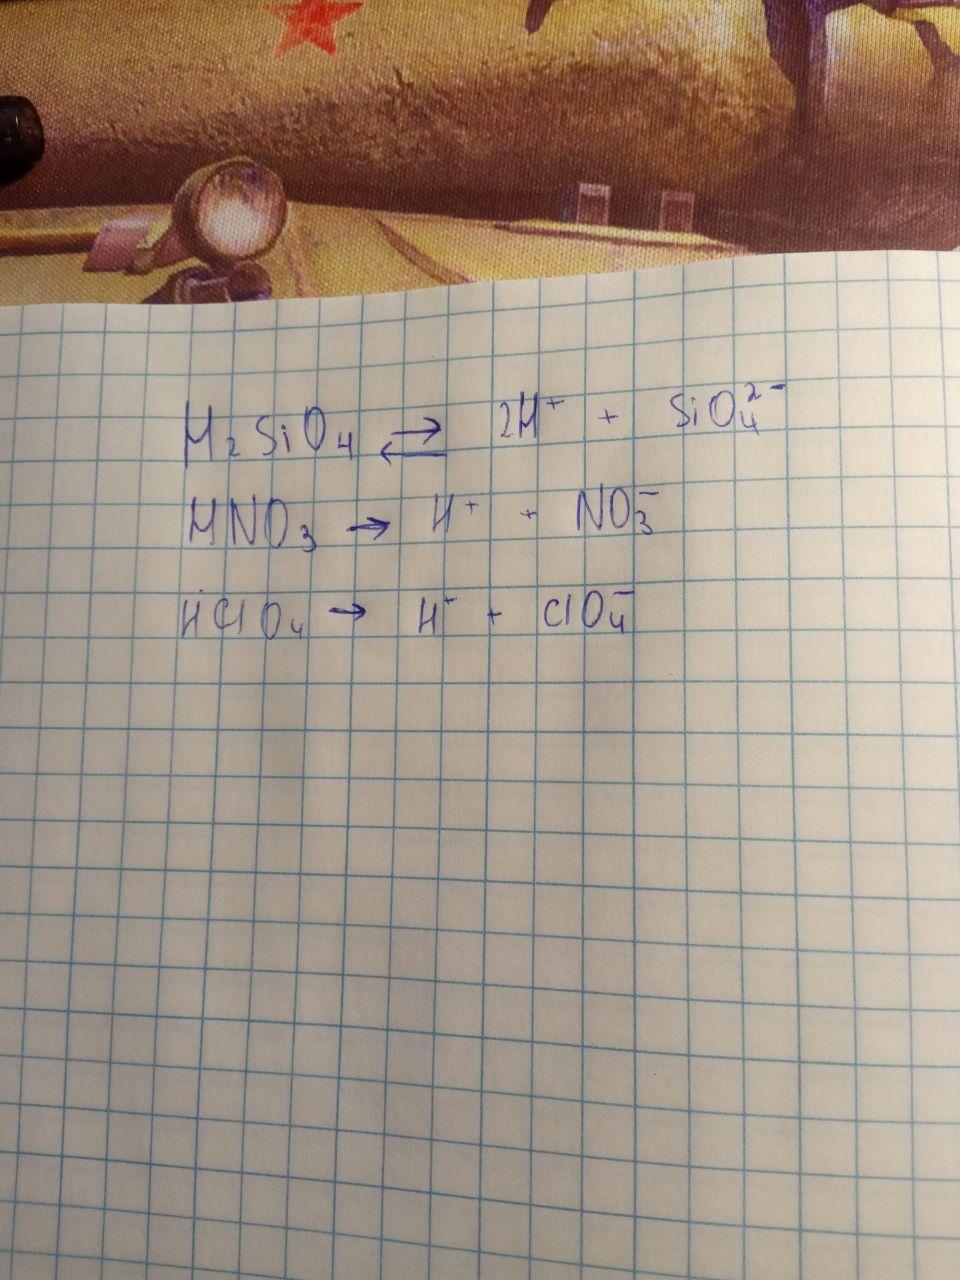 H₂SiO₄ ⇄ 2H⁺ + SiO₄²⁻
HNO₃ → H⁺ + NO₃⁻
HClO₄ → H⁺ + ClO₄⁻